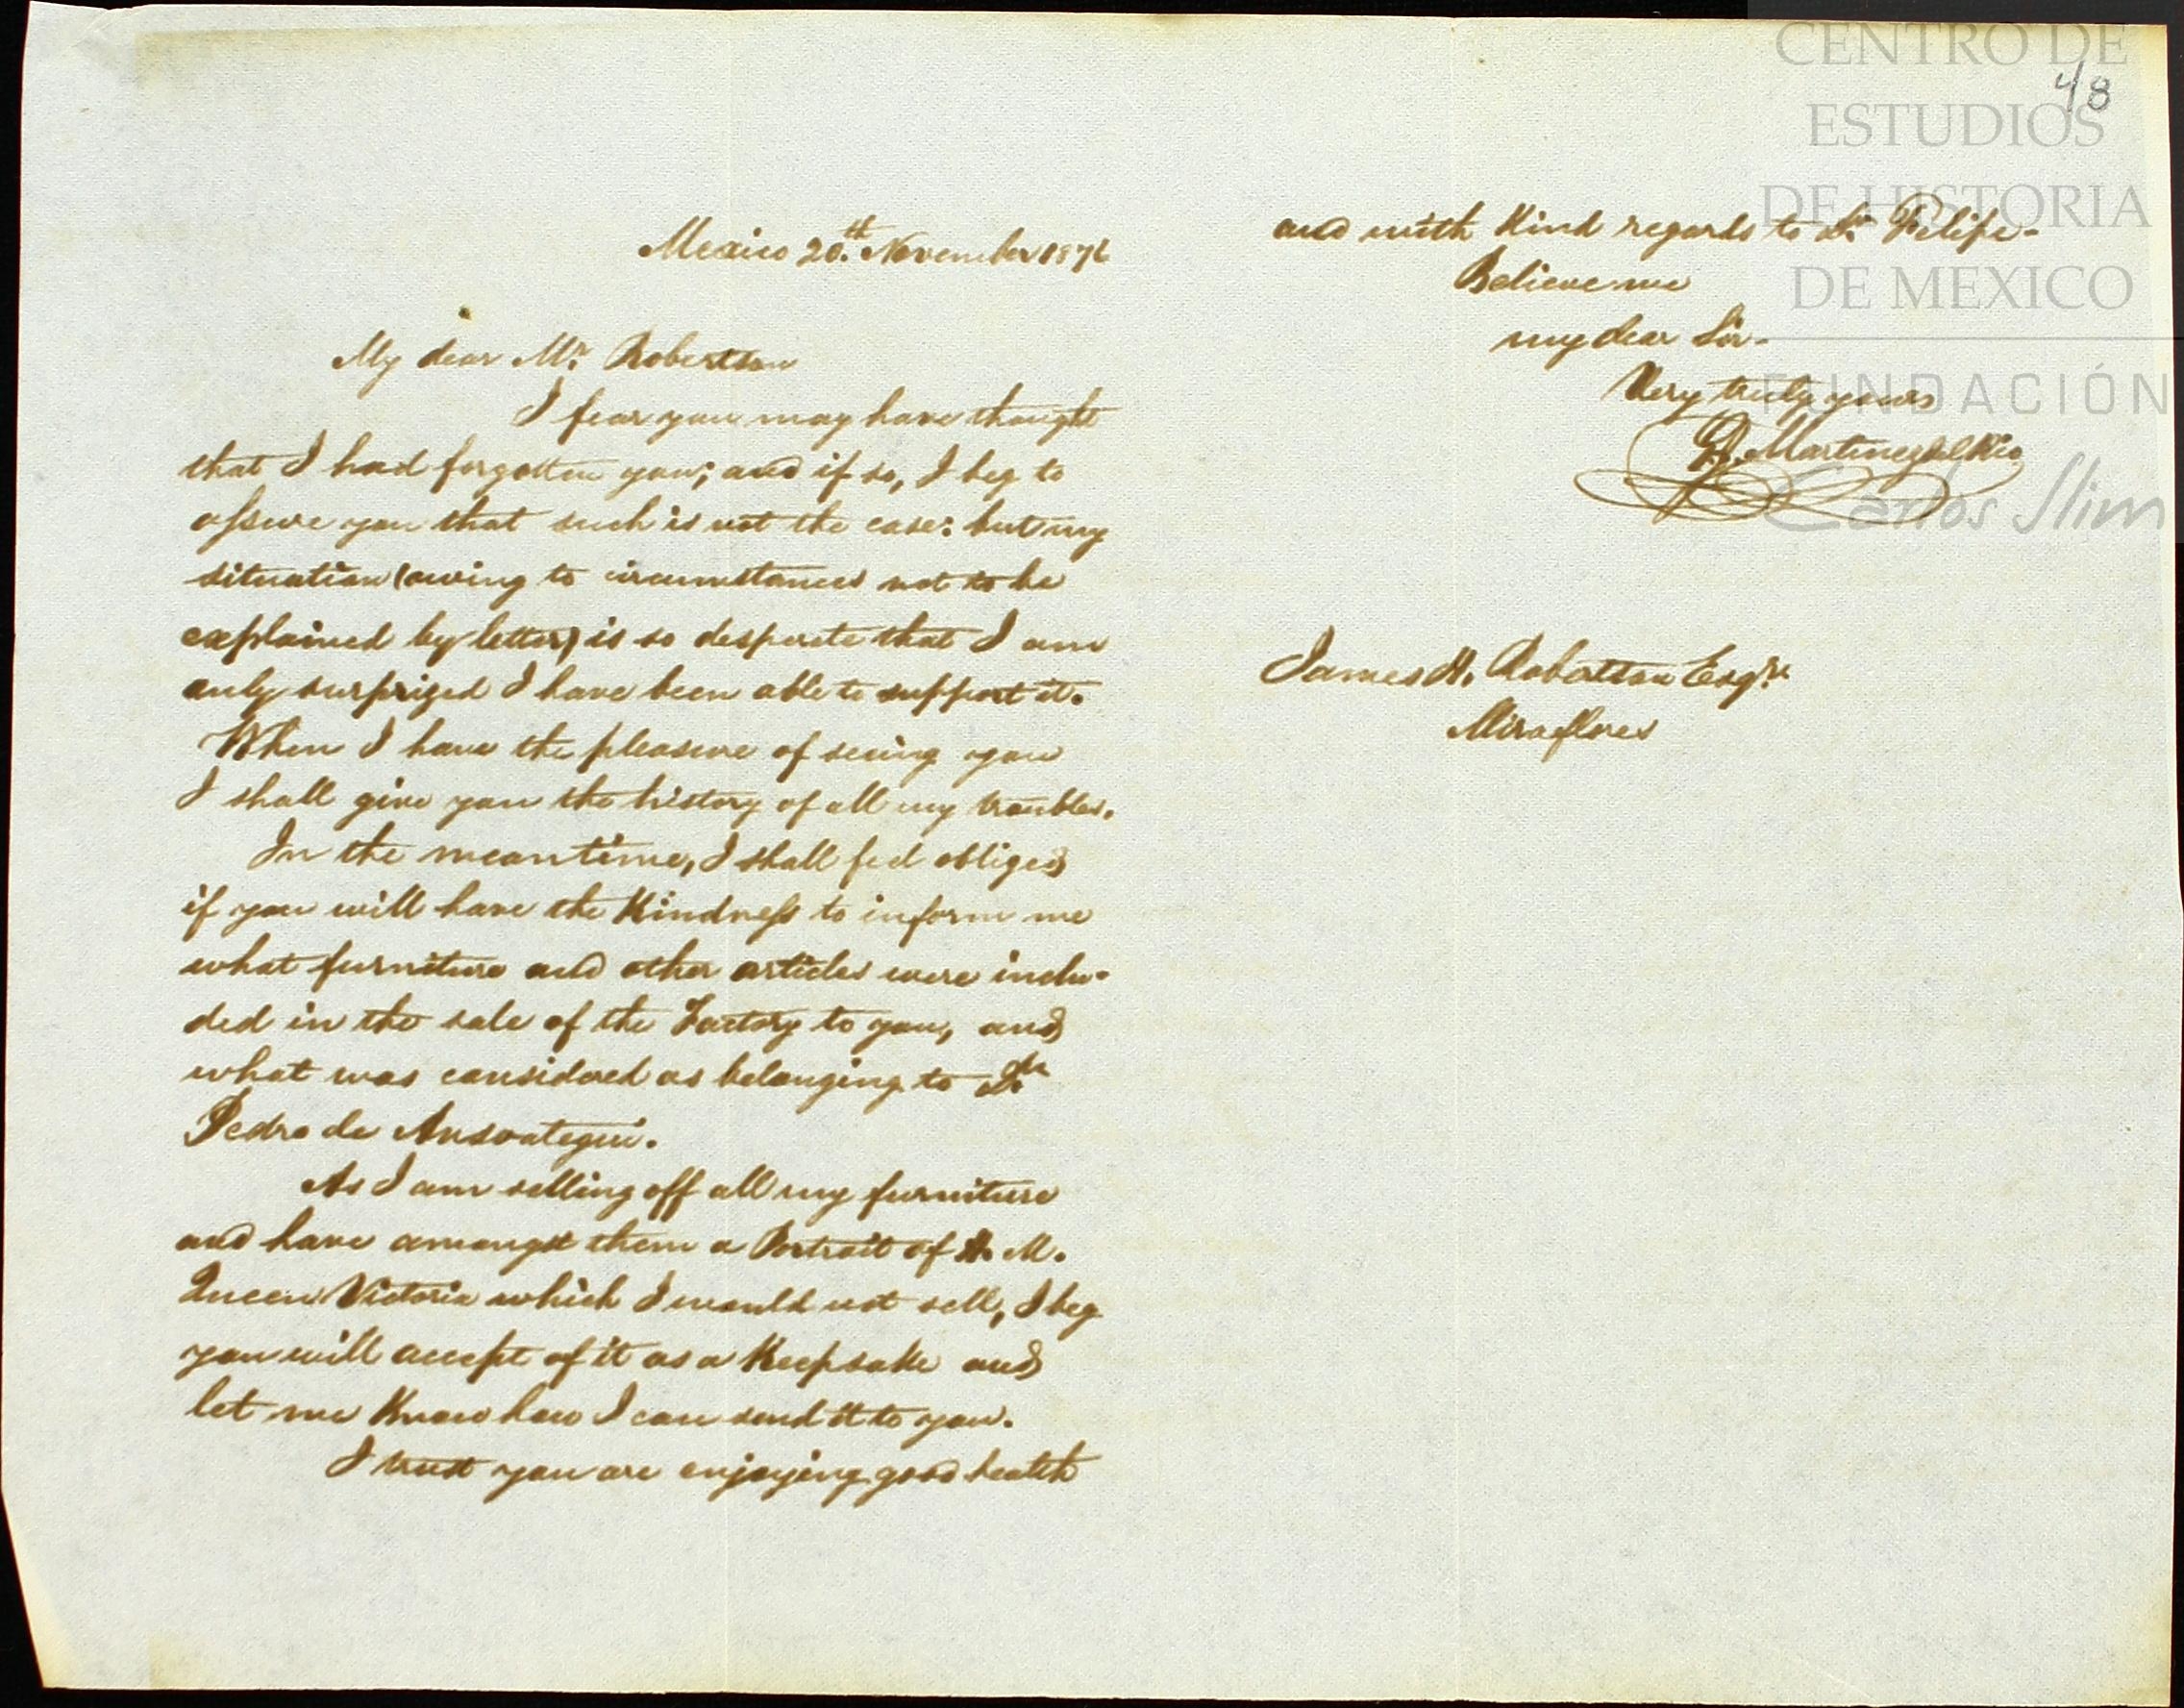 Mexico 20.th November 1876
My dear Mr. Robertson
I fear you may have thought
that I had forgotten you; and if so, I beg to
assure you that such is not the case: but my
situation (owing to circumstances not to be
explained by letter) is so desperate that I am
only surprized I have been able to support it.
When I have the pleasure of seeing you
I shall give you the history of all my troubles.
In the meantime, I shall feel obliged
if you will have the Kindness to inform me
what furniture and other articles were inclu-
ded in the sale of the Factory to you, and
what was considered as belonging to Dn.
Pedro de Ansoategui.
As I am selling off all my furniture
and have amongst them a Portrait of H. M.
Queen Victoria which I would not sell, I beg
you will accept of it as a Keepsake and
let me Know how I can send it to you.
I trust you are enjoying good health
48
and with Kind regards to Dn. Felipe-
Believe me
my dear Sir-
Very truly yours
Martinez del Rio
James H. Robertson Esqre.
Miraflores
CENTRO DE
ESTUDIOS
DE HISTORIA
DE MEXICO
FUNDACIÓN
Carlos Slim